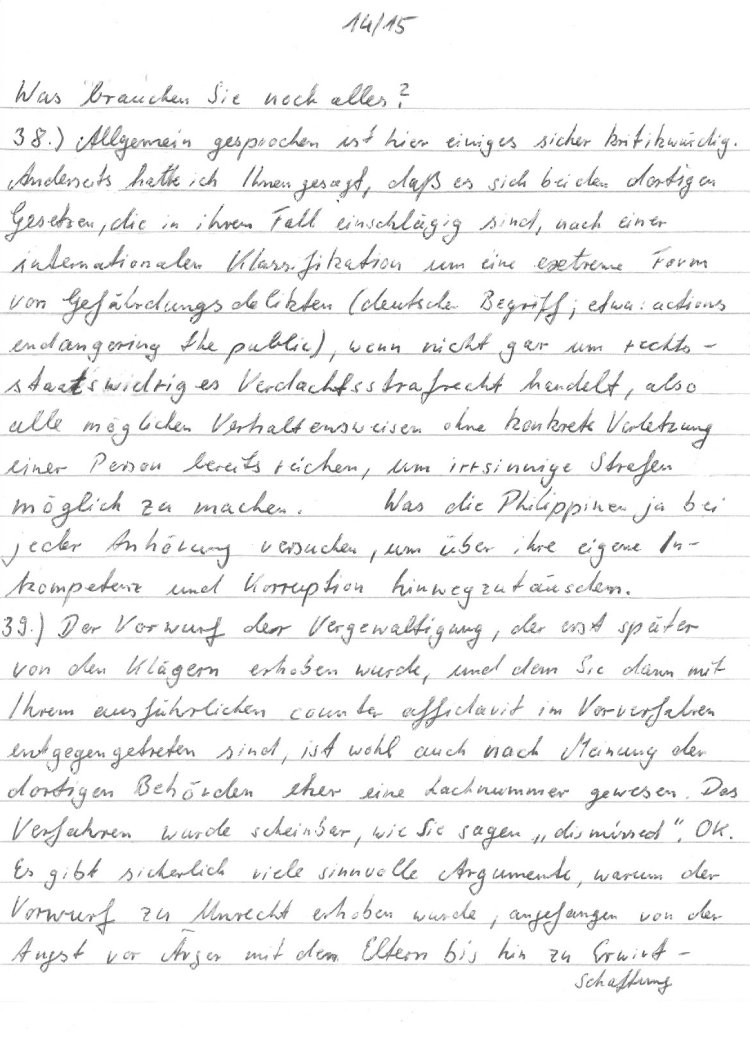 14/15
Was brauchen Sie noch alles?
38.) Allgemein gesprochen ist hier einiges sicher kritikwürdig.
Anderseits hatte ich Ihnen gesagt, daß es sich bei den dortigen
Gesetzen, die in ihrem Fall einschlägig sind, nach einer
internationalen Klassifikation um eine extreme Form
von Gefährdungsdelikten (deutscher Begriff; etwa: actions
endangering the public), wenn nicht gar um rechts-
staatswidriges Verdachtsstrafrecht handelt, also
alle möglichen Verhaltensweisen ohne konkrete Verletzung
einer Person bereits reichen, um irrsinnige Strafen
möglich zu machen. Was die Philippinen ja bei
jeder Anhörung versuchen, um über ihre eigene In-
kompetenz und Korruption hinwegzutäuschen.
39.) Der Vorwurf der Vergewaltigung, der erst später
von den Klägern erhoben wurde, und dem Sie dann mit
Ihrem ausführlichen counter affidavit im Vorverfahren
entgegengetreten sind, ist wohl auch nach Meinung der
dortigen Behörden eher eine Lachnummer gewesen. Das
Verfahren wurde scheinbar, wie Sie sagen „dismissed". OK.
Es gibt sicherlich viele sinnvolle Argumente, warum der
Vorwurf zu Unrecht erhoben wurde, angefangen von der
Angst vor Ärger mit den Eltern bis hin zu Erwirt-
schaftung